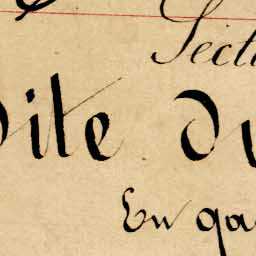 Secti
dite du
En qua